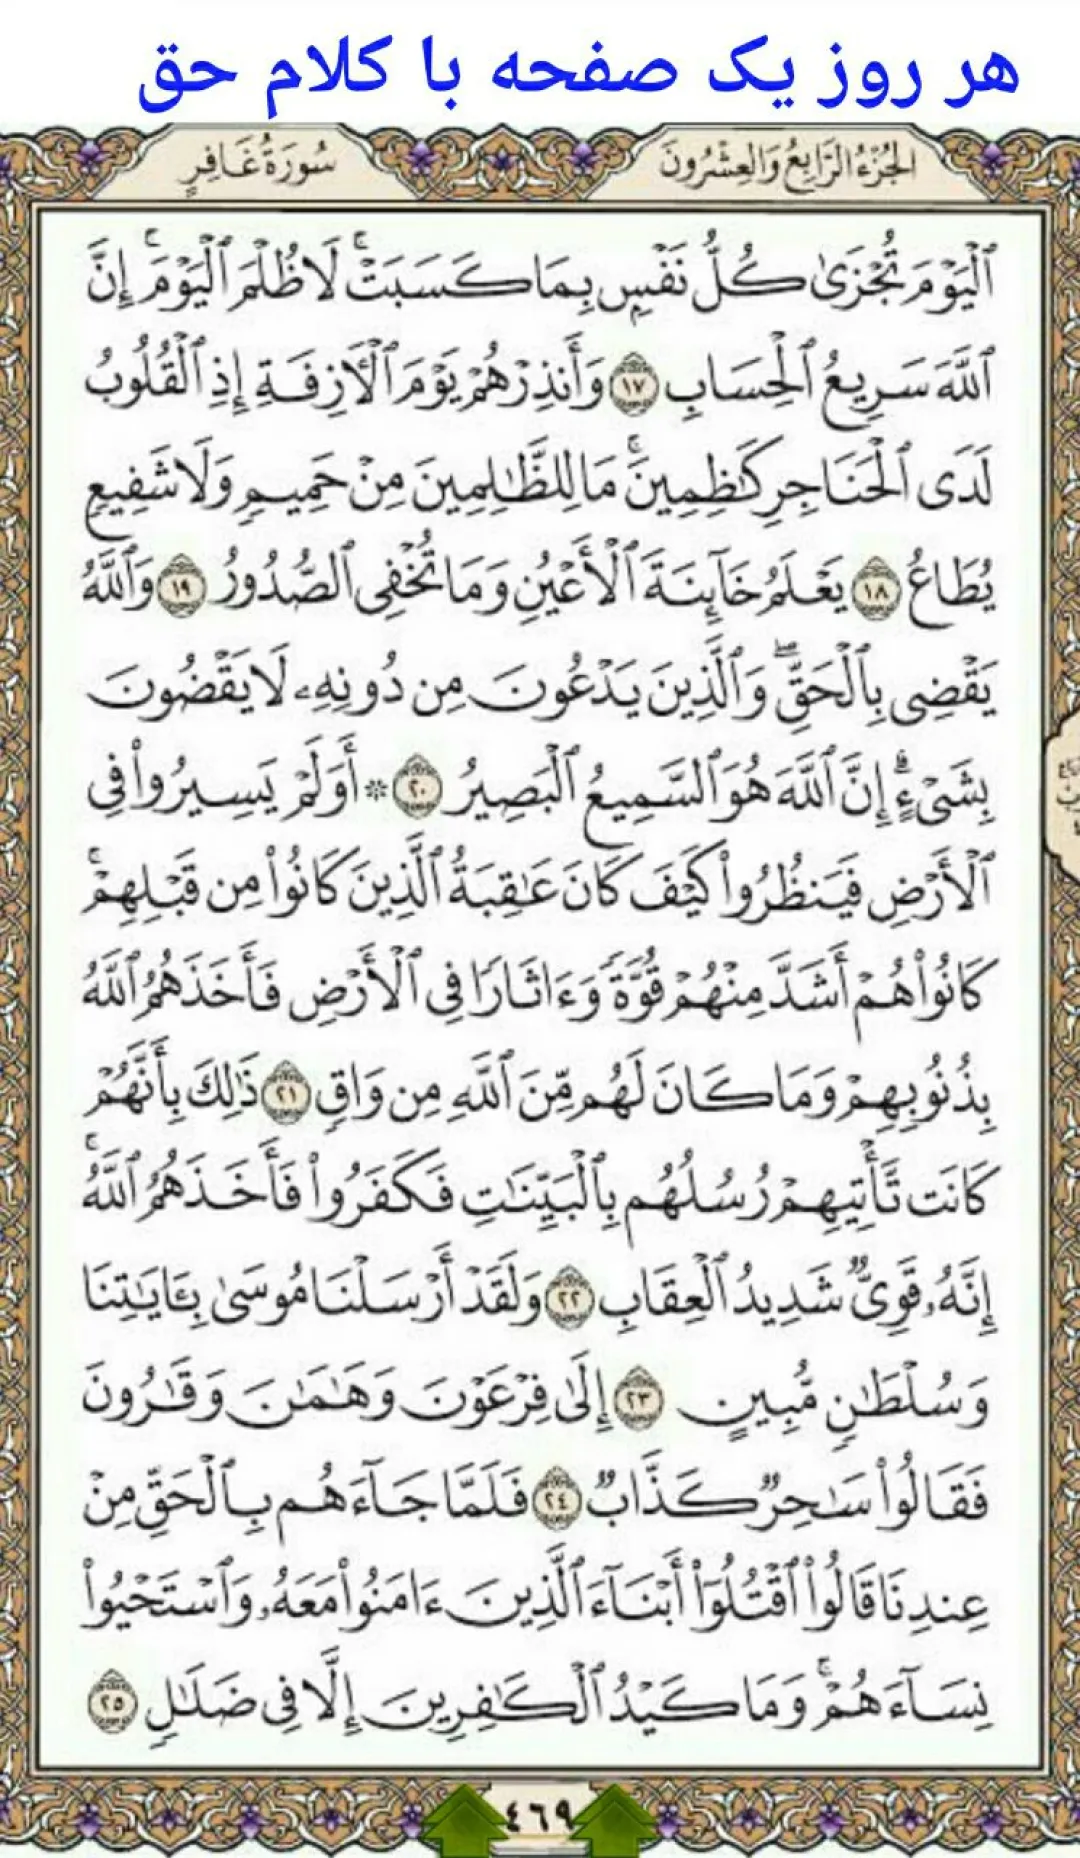 هر روز یک صفحه با کلام حق
الجُزْءُ الرَّابِعُ وَالعِشْرُونَ
سُورَةُ غَافِرٍ
ٱلْيَوْمَ تُجْزَىٰ كُلُّ نَفْسٍۭ بِمَا كَسَبَتْۚ لَا ظُلْمَ ٱلْيَوْمَۚ إِنَّ
ٱللَّهَ سَرِيعُ ٱلْحِسَابِ ١٧ وَأَنذِرْهُمْ يَوْمَ ٱلْأَزِفَةِ إِذِ ٱلْقُلُوبُ
لَدَى ٱلْحَنَاجِرِ كَٰظِمِينَۚ مَا لِلظَّٰلِمِينَ مِنْ حَمِيمٍ وَلَا شَفِيعٍ
يُطَاعُ ١٨ يَعْلَمُ خَآئِنَةَ ٱلْأَعْيُنِ وَمَا تُخْفِى ٱلصُّدُورُ ١٩ وَٱللَّهُ
يَقْضِى بِٱلْحَقِّۖ وَٱلَّذِينَ يَدْعُونَ مِن دُونِهِۦ لَا يَقْضُونَ
بِشَىْءٍۗ إِنَّ ٱللَّهَ هُوَ ٱلسَّمِيعُ ٱلْبَصِيرُ ٢٠ * أَوَلَمْ يَسِيرُوا۟ فِى
ٱلْأَرْضِ فَيَنظُرُوا۟ كَيْفَ كَانَ عَٰقِبَةُ ٱلَّذِينَ كَانُوا۟ مِن قَبْلِهِمْۚ
كَانُوا۟ هُمْ أَشَدَّ مِنْهُمْ قُوَّةً وَءَاثَارًا فِى ٱلْأَرْضِ فَأَخَذَهُمُ ٱللَّهُ
بِذُنُوبِهِمْ وَمَا كَانَ لَهُم مِّنَ ٱللَّهِ مِن وَاقٍ ٢١ ذَٰلِكَ بِأَنَّهُمْ
كَانَت تَّأْتِيهِمْ رُسُلُهُم بِٱلْبَيِّنَٰتِ فَكَفَرُوا۟ فَأَخَذَهُمُ ٱللَّهُۚ
إِنَّهُۥ قَوِىٌّ شَدِيدُ ٱلْعِقَابِ ٢٢ وَلَقَدْ أَرْسَلْنَا مُوسَىٰ بِـَٔايَٰتِنَا
وَسُلْطَٰنٍ مُّبِينٍ ٢٣ إِلَىٰ فِرْعَوْنَ وَهَٰمَٰنَ وَقَٰرُونَ
فَقَالُوا۟ سَٰحِرٌ كَذَّابٌ ٢٤ فَلَمَّا جَآءَهُم بِٱلْحَقِّ مِنْ
عِندِنَا قَالُوا۟ ٱقْتُلُوٓا۟ أَبْنَآءَ ٱلَّذِينَ ءَامَنُوا۟ مَعَهُۥ وَٱسْتَحْيُوا۟
نِسَآءَهُمْۚ وَمَا كَيْدُ ٱلْكَٰفِرِينَ إِلَّا فِى ضَلَٰلٍ ٢٥
٤٦٩